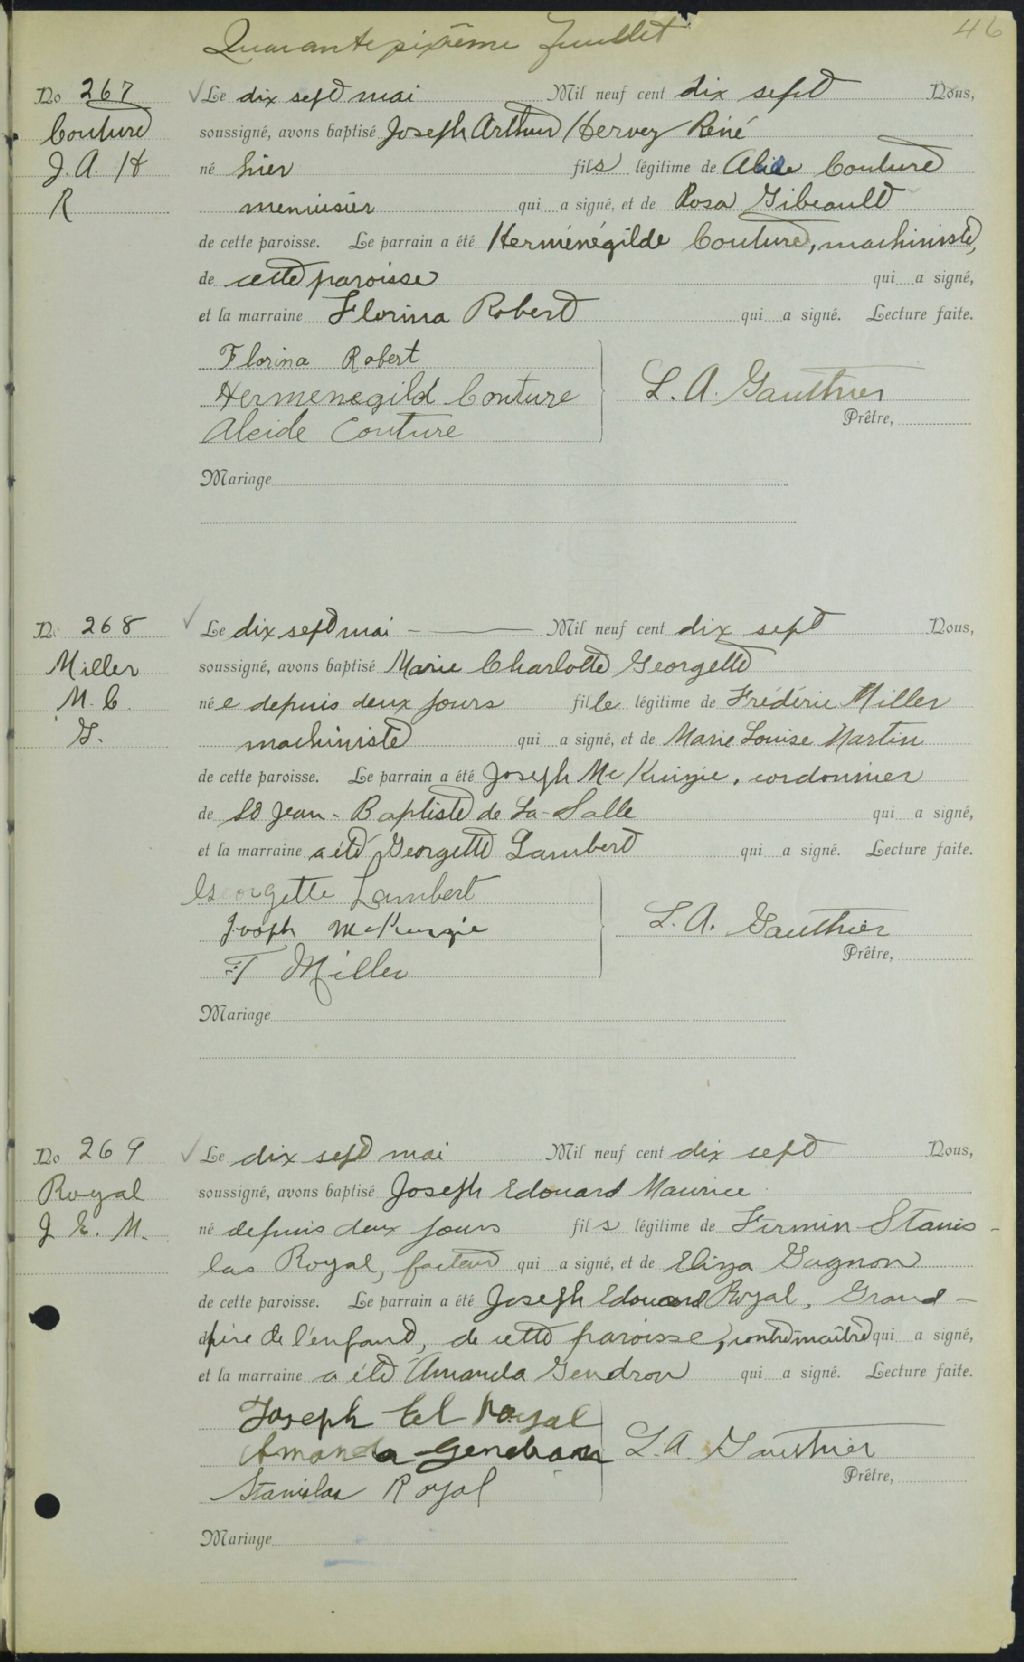 Quarante sixième Feuillet
46
No 267 Le dix sept mai Mil neuf cent dix sept Nous,
Couture soussigné, avons baptisé Joseph Arthur Hervey Réné
J. A. H né hier fils légitime de Alcide Couture
R menuisier qui a signé, et de Rosa Gibeault
de cette paroisse. Le parrain a été Herménégilde Couture, machiniste,
de cette paroisse qui a signé,
et la marraine Florina Robert qui a signé. Lecture faite.
Florina Robert
Hermenegild Couture L. A. Gauthier
Alcide Couture Prêtre,
Mariage
N. 268 Le dix sept mai Mil neuf cent dix sept Nous,
Miller soussigné, avons baptisé Marie Charlotte Georgette
M. C. née depuis deux jours fille légitime de Frédéric Miller
G. machiniste qui a signé, et de Marie Louise Martin
de cette paroisse. Le parrain a été Joseph Mc Kinzie, cordonnier
de St Jean-Baptiste de La-Salle qui a signé,
et la marraine a été Georgette Lambert qui a signé. Lecture faite.
Georgette Lambert
Joseph McKenzie L. A. Gauthier
F Miller Prêtre,
Mariage
No 269 Le dix sept mai Mil neuf cent dix sept Nous,
Royal soussigné, avons baptisé Joseph Edouard Maurice
J. E. M. né depuis deux jours fils légitime de Firmin Stanis-
las Royal, facteur qui a signé, et de Eliza Gagnon
de cette paroisse. Le parrain a été Joseph Edouard Royal, Grand-
père de l'enfant, de cette paroisse, contremaître qui a signé,
et la marraine a été Amanda Gendron qui a signé. Lecture faite.
Joseph Ed Royal
Amanda Gendron L. A. Gauthier
Stanislas Royal Prêtre,
Mariage